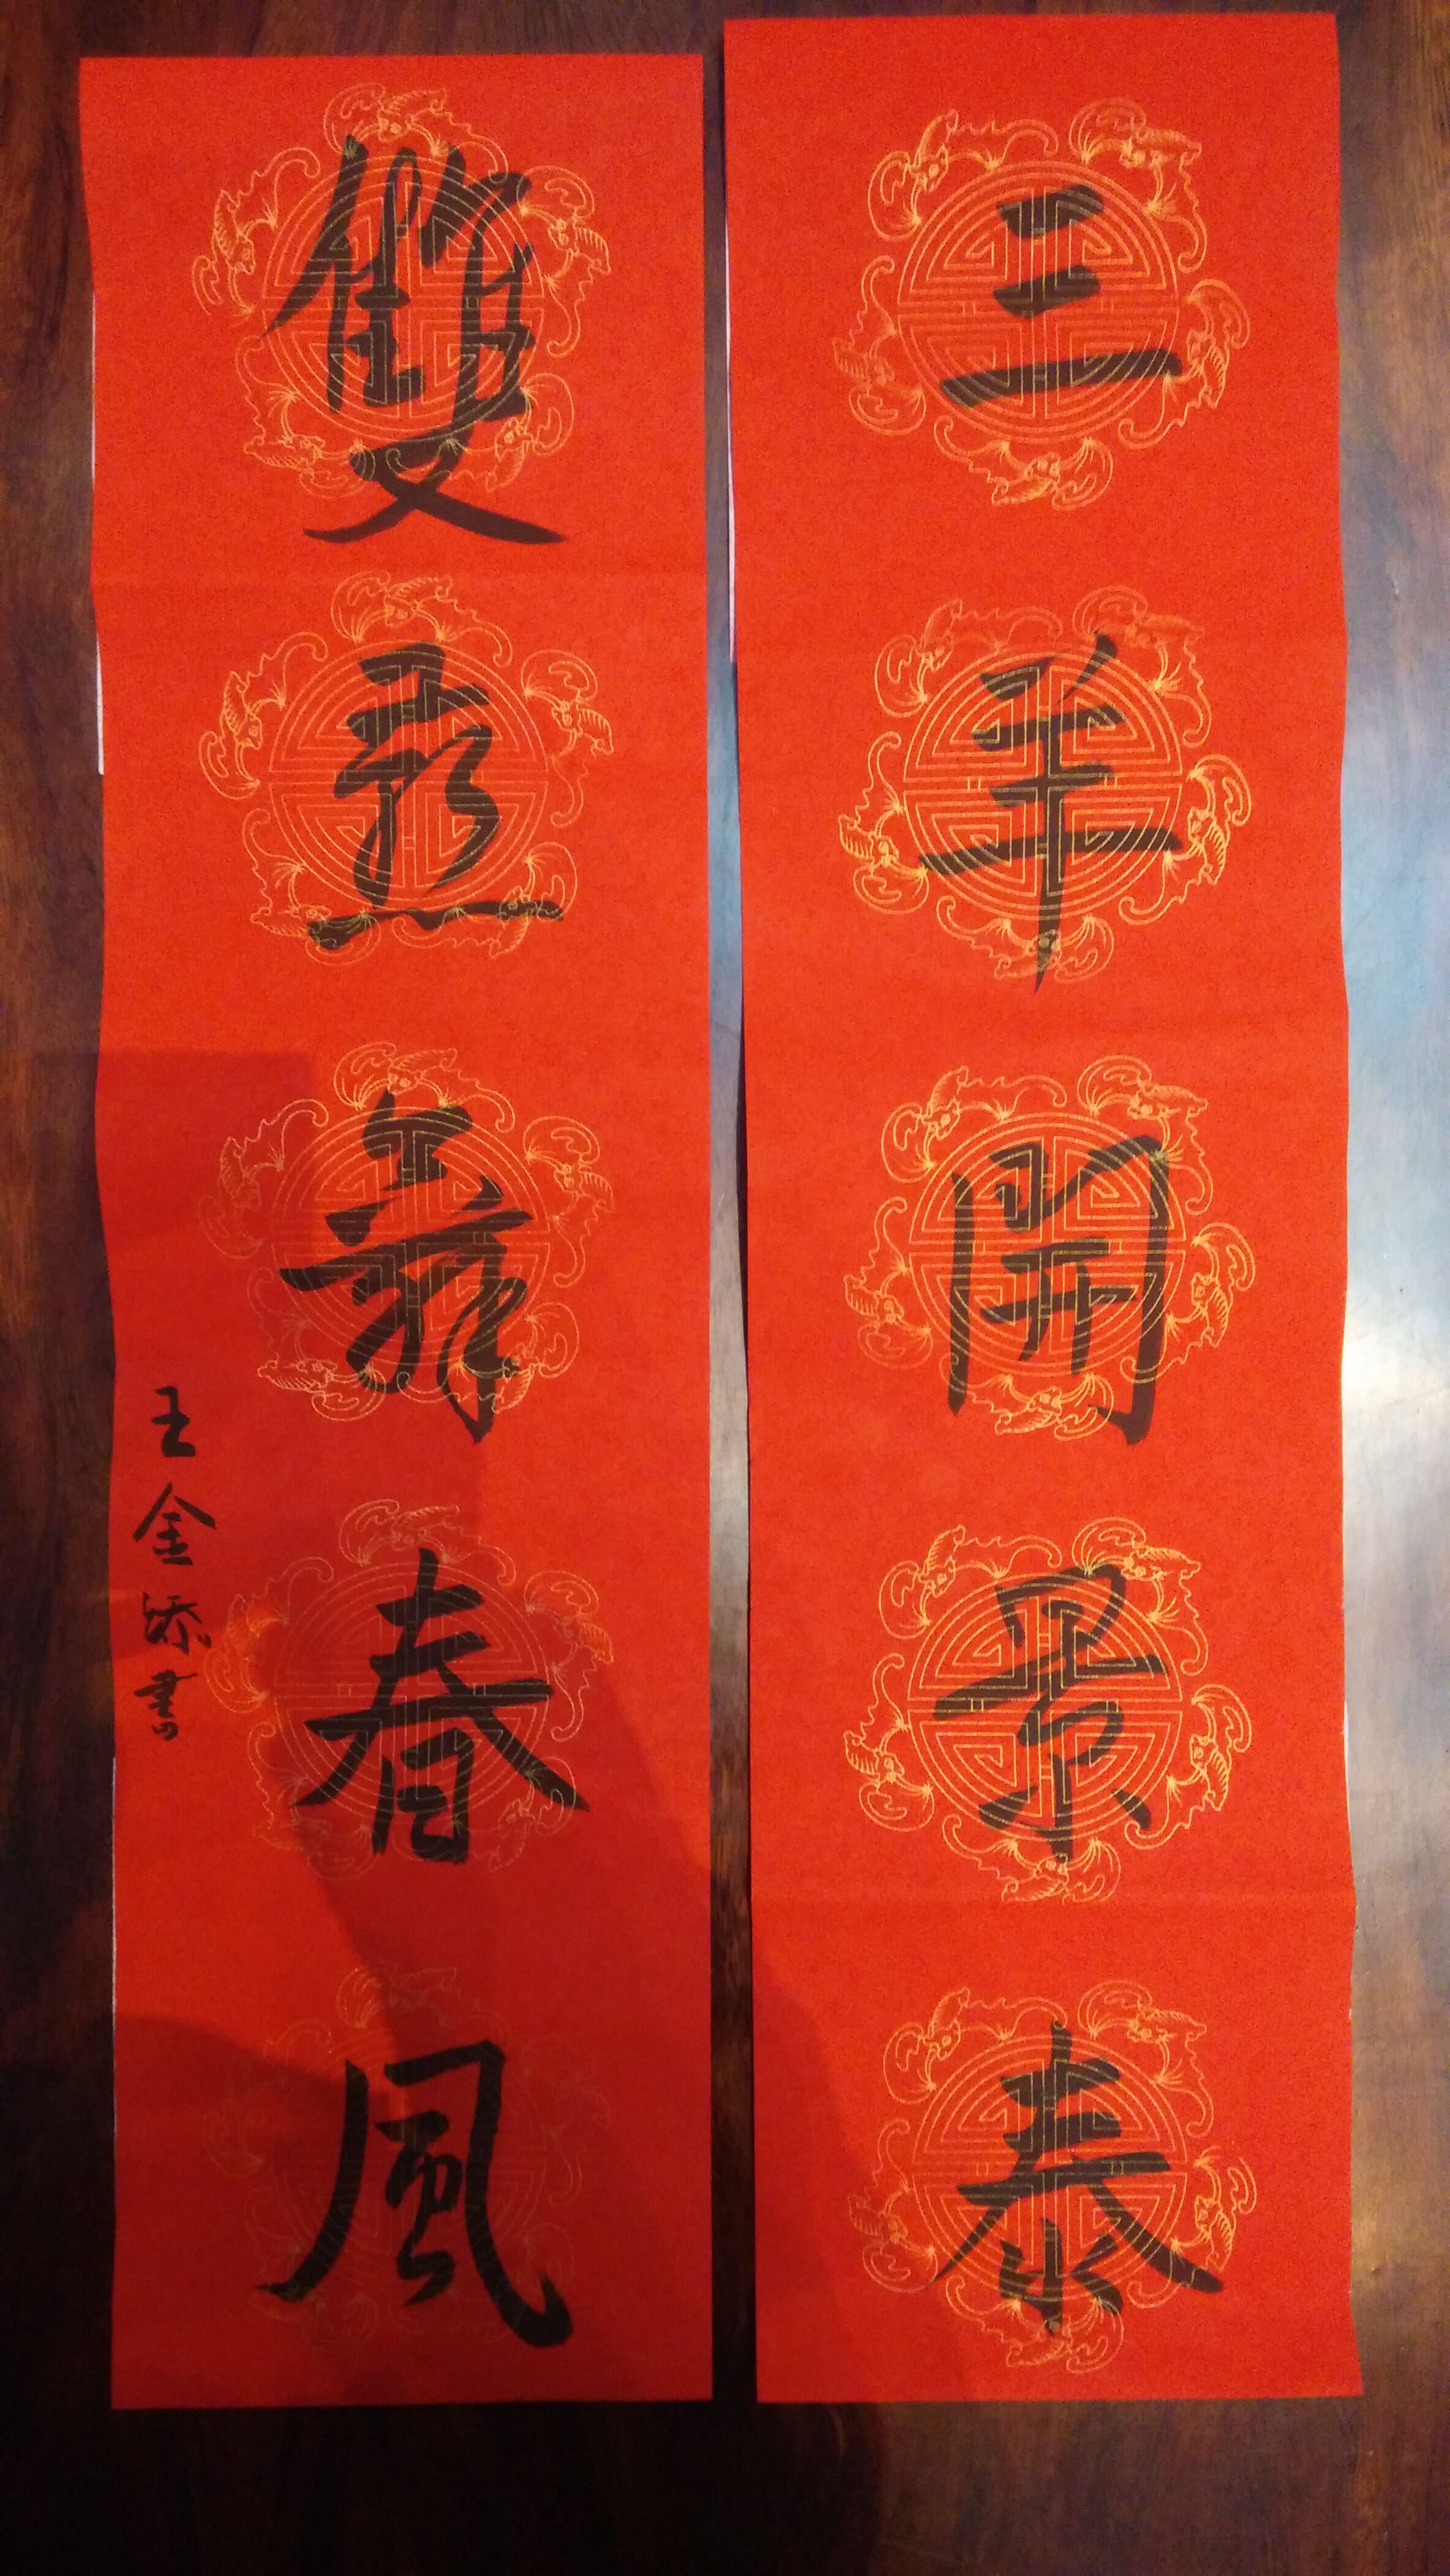 三羊開景泰
雙燕舞春風
王金添書